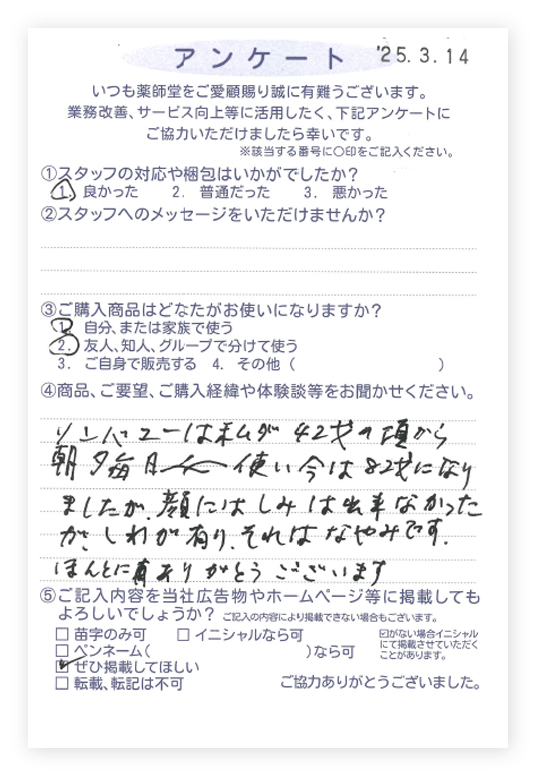 アンケート
'25.3.14
いつも薬師堂をご愛顧賜り誠に有難うございます。
業務改善、サービス向上等に活用したく、下記アンケートに
ご協力いただけましたら幸いです。
※該当する番号に〇印をご記入ください。
①スタッフの対応や梱包はいかがでしたか?
1. 良かった 2. 普通だった 3. 悪かった
②スタッフへのメッセージをいただけませんか?
③ご購入商品はどなたがお使いになりますか?
1. 自分、または家族で使う
2. 友人、知人、グループで分けて使う
3. ご自身で販売する 4. その他 ( )
④商品、ご要望、ご購入経緯や体験談等をお聞かせください。
ソンバユーは私しが 42才の頃から
朝夕毎日 使い今は82才になり
ましたが、顔にはしみは出来なかった
が、しわが有り、それはなやみです。
ほんとに ありがとうございます
⑤ご記入内容を当社広告物やホームページ等に掲載しても
よろしいでしょうか? ご記入の内容により掲載できない場合もございます。
□ 苗字のみ可 □ イニシャルなら可
□ ペンネーム( )なら可
☑がない場合イニシャル
にて掲載させていただく
ことがあります。
☑ ぜひ掲載してほしい
□ 転載、転記は不可
ご協力ありがとうございました。